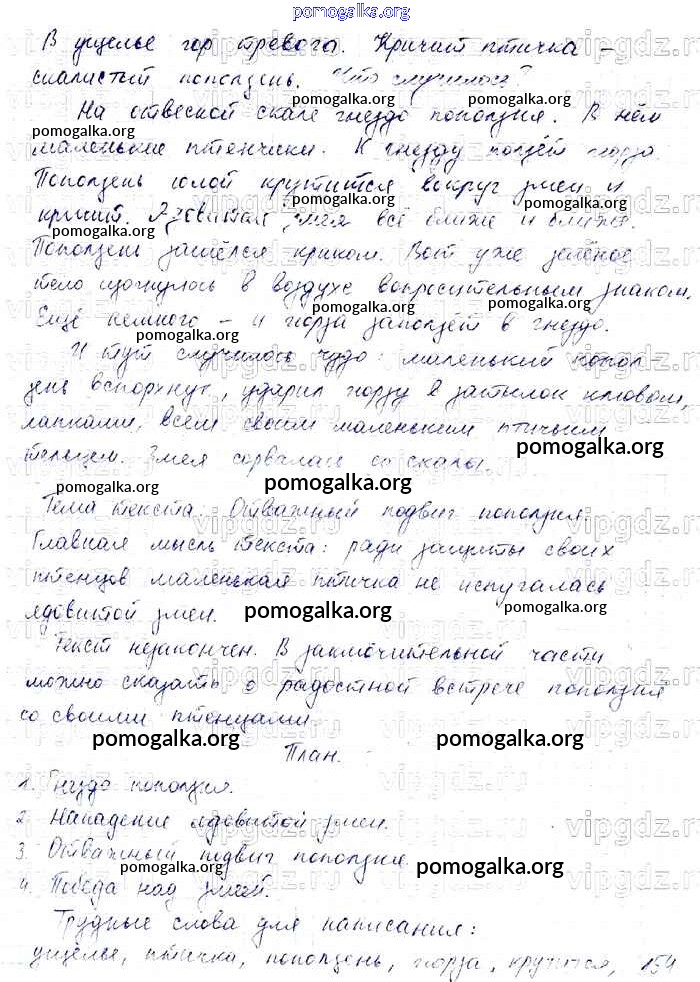 pomogalka.org
В ущелье гор тревога. Кричит птичка –
скалистый поползень. Что случилось?
pomogalka.org pomogalka.org
На отвесной скале гнездо поползня. В нём
pomogalka.org
маленькие птенчики. К гнезду ползёт гюрза.
pomogalka.org
Поползень юлой крутится вокруг змеи и
pomogalka.org
кричит. Ядовитая змея всё ближе и ближе.
pomogalka.org pomogalka.org
Поползень зашёлся криком. Вот уже зелёное
тело изогнулось в воздухе вопросительным знаком.
pomogalka.org pomogalka.org
Ещё немного – и гюрза заползёт в гнездо.
pomogalka.org
И тут случилось чудо: маленький попол-
зень вспорхнул, ударил гюрзу в затылок клювом,
лапками, всем своим маленьким птичьим
pomogalka.org
тельцем. Змея сорвалась со скалы.
pomogalka.org
pomogalka.org pomogalka.org
Тема текста: Отважный подвиг поползня.
Главная мысль текста: ради защиты своих
птенцов маленькая птичка не испугалась
ядовитой змеи.
pomogalka.org pomogalka.org
Текст незакончен. В заключительной части
можно сказать о радостной встрече поползня
со своими птенцами.
pomogalka.org pomogalka.org
План.
1. Гнездо поползня.
2. Нападение ядовитой змеи.
3. Отважный подвиг поползня.
pomogalka.org
4. Победа над змеёй.
Трудные слова для написания:
ущелье, птичка, поползень, гюрза, крутится, 154
vipgdz.ru